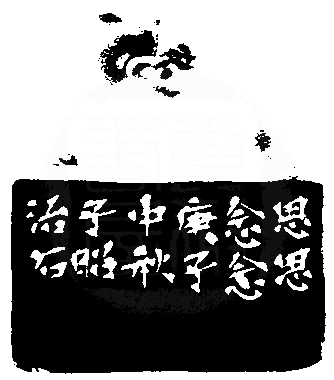 思思
念念
庚子
中秋
子昭
治石